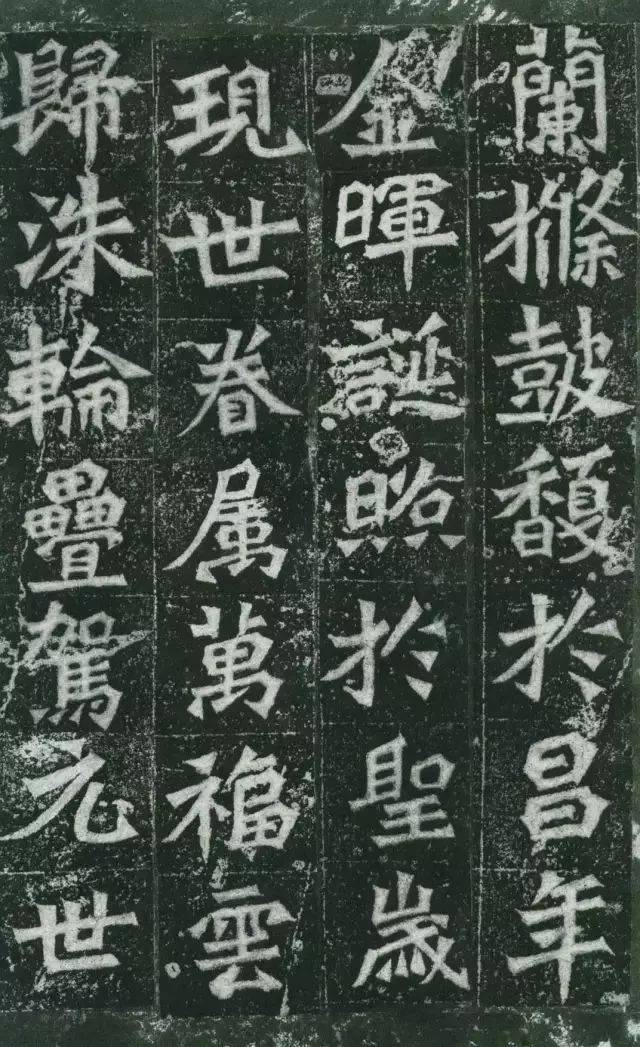 蘭樤皷馥於昌年
金暉誕照於聖歲
現世眷属萬福雲
歸洙輪疊駕元世